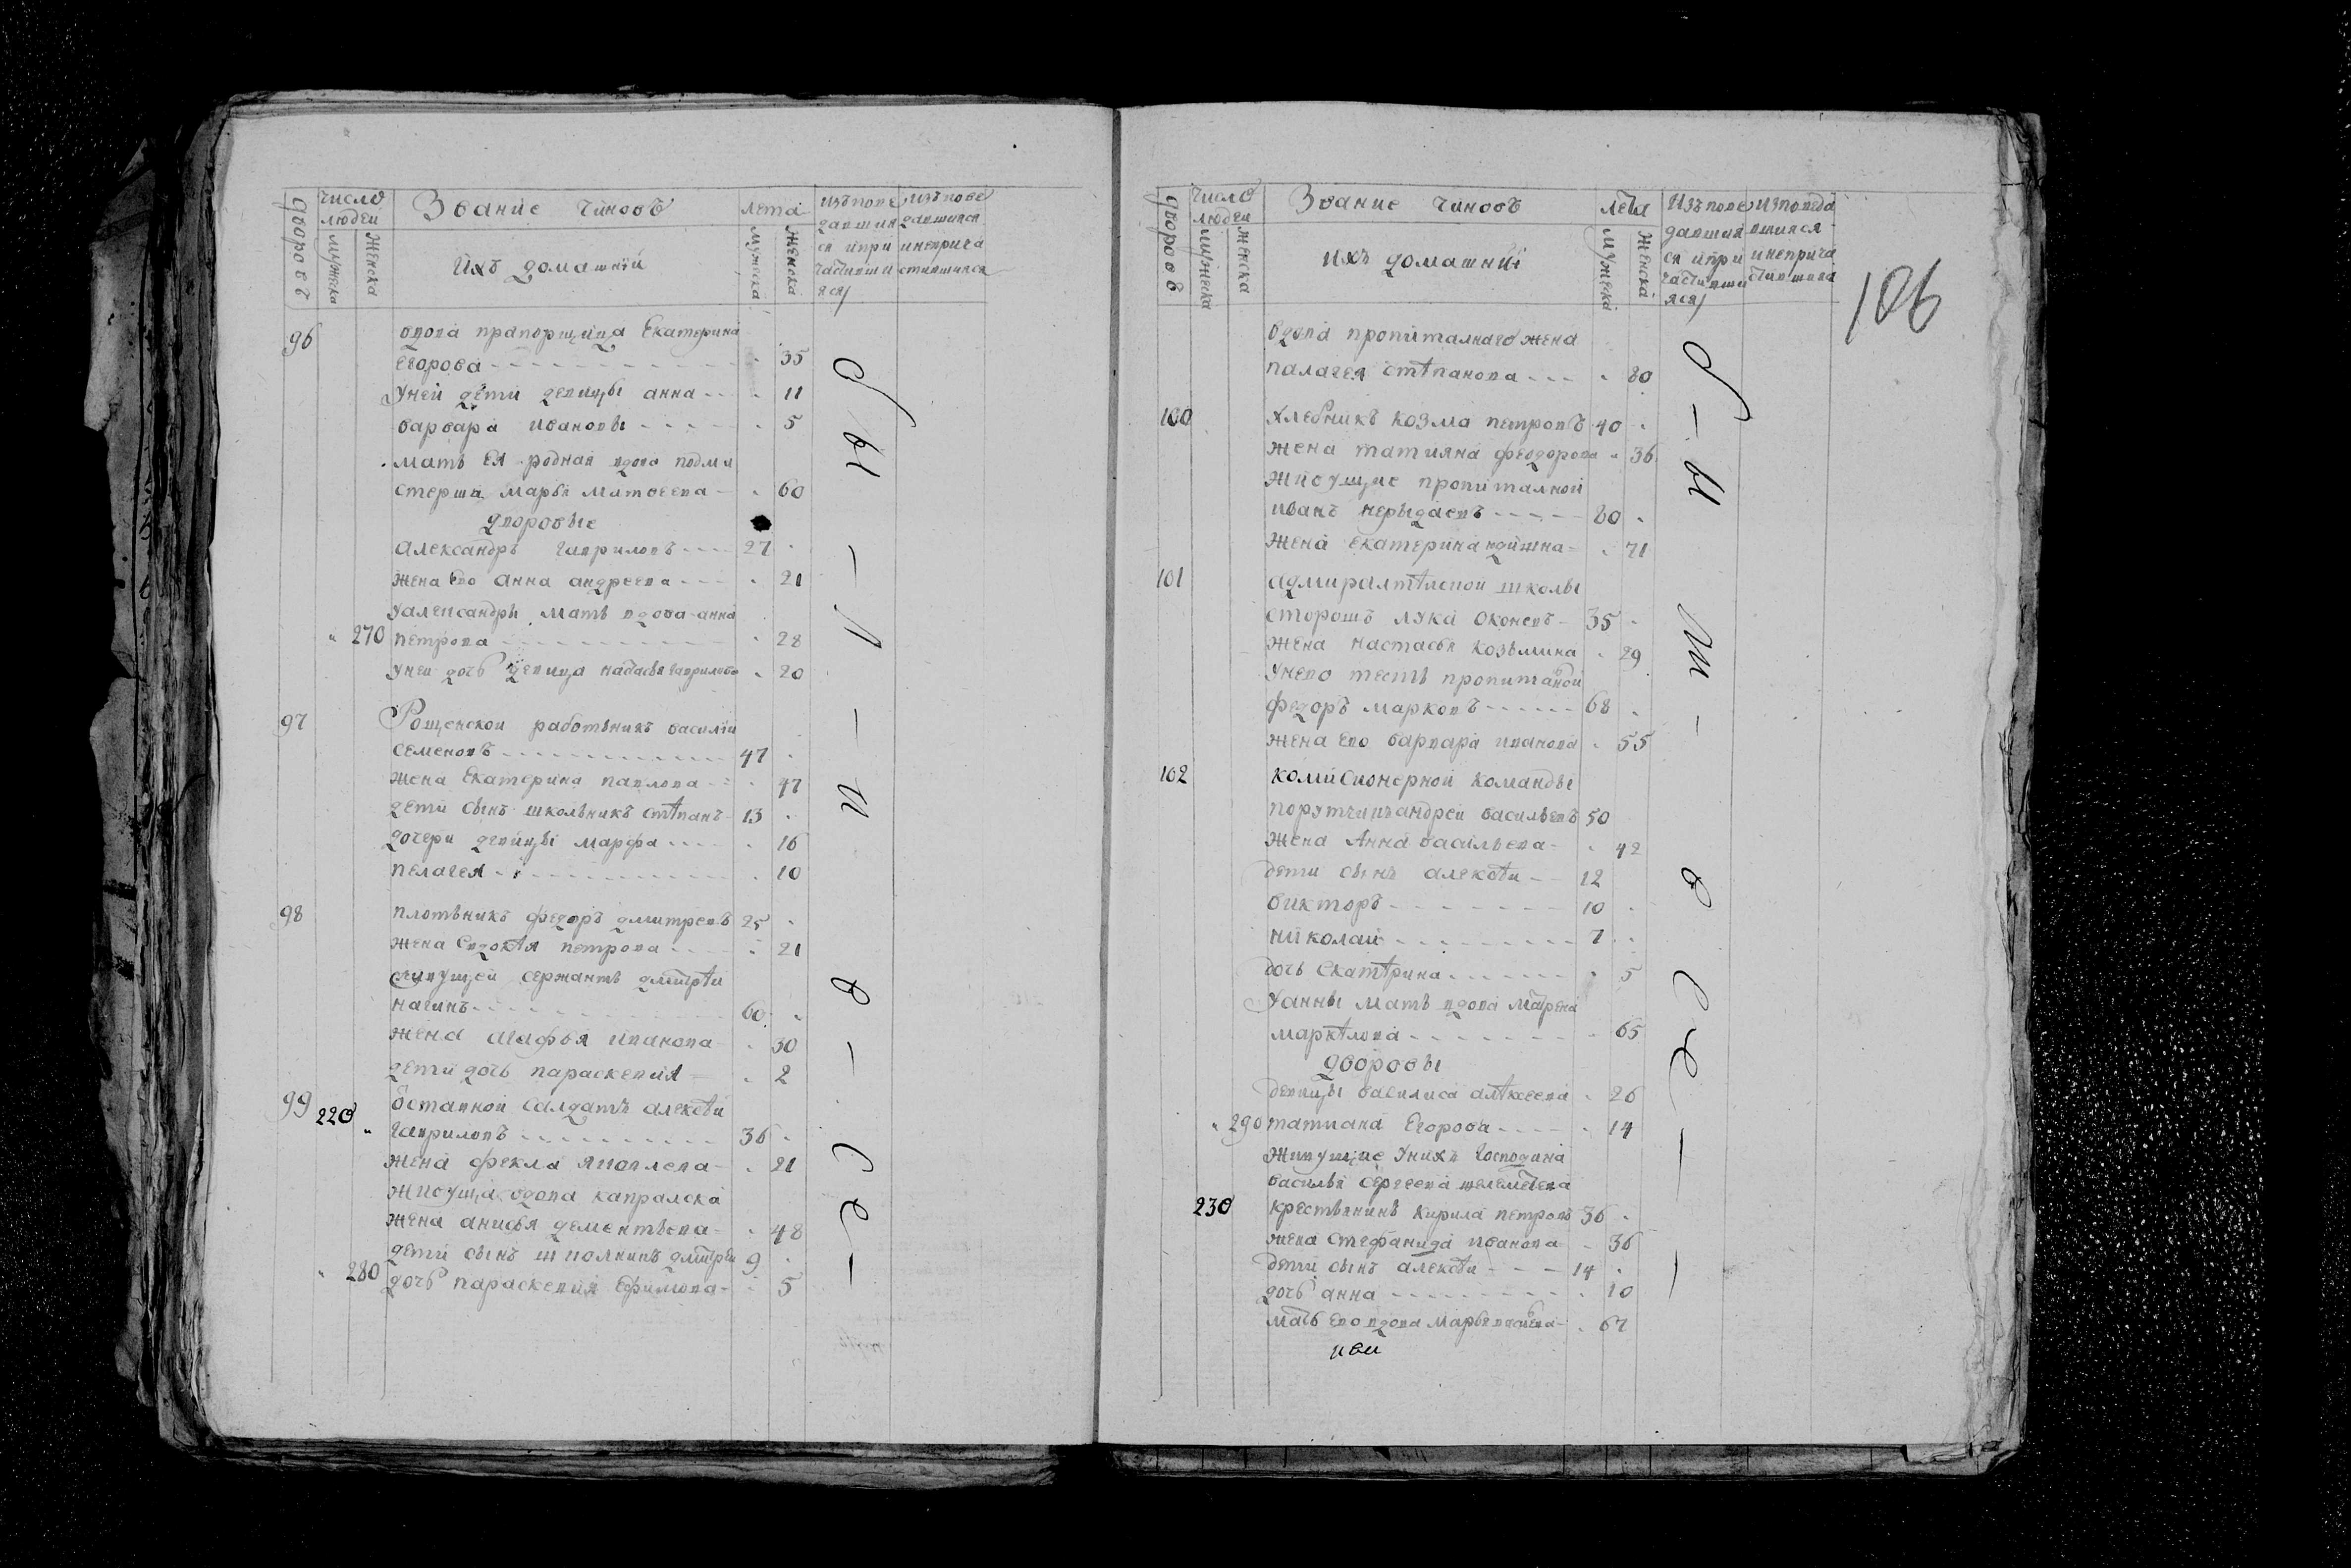 дворовъ
число
людеи
мужеска
женска
Звание чиновъ
ихъ домашнїи
лета
мужеска
женска
изъпове
давшия
ся ипри
частивши
яся
изъпове
давшияся
инеприча
стившияся
96
вдова прапорщица Екатерина
егорова 35
унеи дети девицы анна 11
варвара ивановы 5
мать ея родная вдова подма
стерша марья матвеева 60
дворовые
александръ гавриловъ 27
жена ево анна андреева 21
уалександры мать вдова анна
270 петрова 28
унеи дочь девица настасья гаврилова 20
97
Рощенскои работникъ василїи
семеновъ 47
жена Екатерина павлова 47
дети сынъ школьникъ стѣпанъ 13
дочери девицы марфа 16
пелагея 10
98
плотникъ федоръ дмитревъ 25
жена Евдокѣя петрова 21
сержантъ дмитрѣи
60
жена агафья иванова 30
дети дочь параскевия 2
99 220
отставной салдатъ алексѣи
гавриловъ 36
жена фекла яковлева 21
живуща вдова капралска
жена анисья дементьева 48
дети сынъ школникъ дмитреи 9
280 дочь параскевия Ефимова 5
дворовъ
число
людеи
мужеска
женска
Звание чиновъ
ихъ домашнїи
лета
мужеска
женска
Изъпове
давшия
ся ипри
частивши
яся
изповеда
вшияся
инеприча
стившияся
106
вдова пропиталнаго жена
палагея стѣпанова 80
100
хлебникъ козма петровъ 40
жена татияна феодорова 36
живущие пропиталной
иванъ 80
жена екатерина 71
101
адмиралтѣиской школы
сторошъ лука 35
жена настасья козьмина 29
унево тесть пропиталной
федоръ марковъ 68
жена ево варвара иванова 55
102
комисионерной команды
порутчикъ андреи васильевъ 50
жена Анна васильева 42
дети сынъ алексѣи 12
викторъ 10
николаи 7
дочь Екатѣрина 5
Уанны мать вдова матрена
маркѣлова 65
дворовы
девицы василиса алѣксеева 26
290 татиана Егорова 14
живущие унихъ господина
василья сергеева шелеметева
230 крестьянинъ кирила петровъ 36
жена стефанида иванова 36
дети сынъ алексѣи 14
дочь анна 10
мать ево вдова марья 67